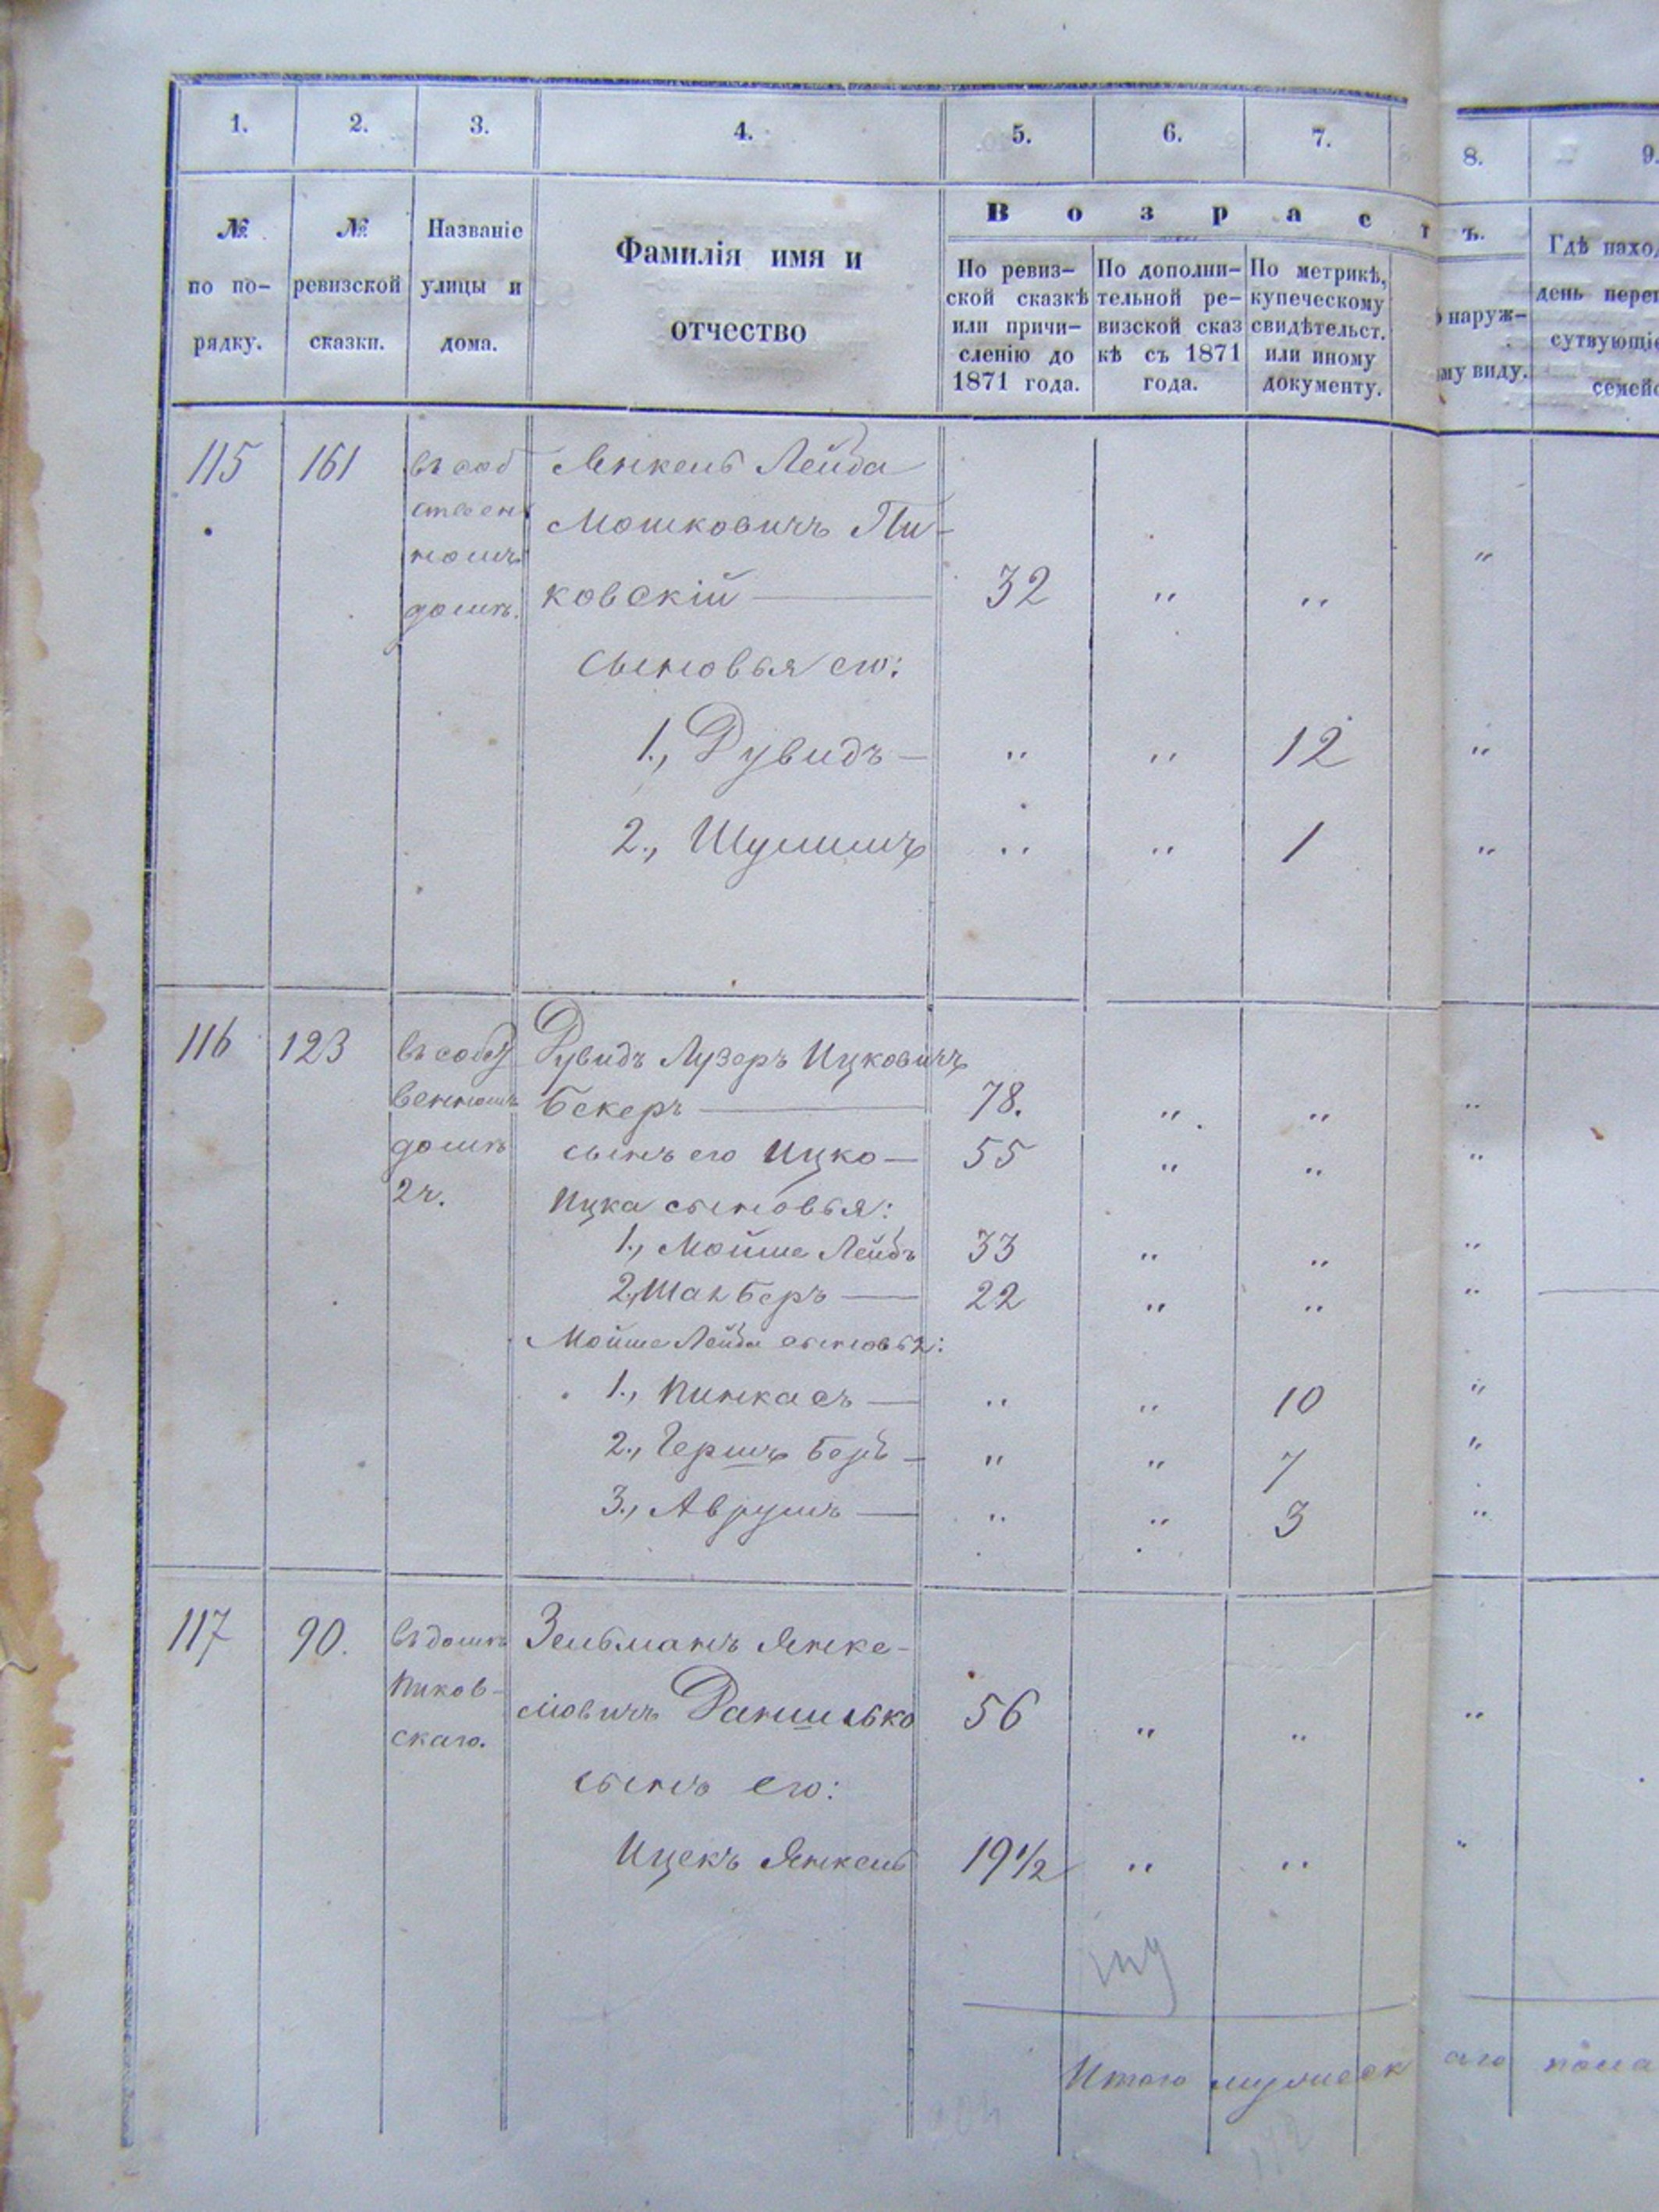 1. 2. 3. 4. 5. 6. 7. 8. 9.
№ по по-рядку.
№ ревизской сказки.
Названіе улицы и дома.
Фамилія имя и отчество
Возрастъ.
По ревиз-
ской сказкѣ
или причи-
сленію до
1871 года.
По дополни-
тельной ре-
визской сказ
кѣ съ 1871
года.
По метрикѣ,
купеческому
свидѣтельст.
или иному
документу.
наруж-
му виду.
Гдѣ наход
день пере
сутвующіе
семей
115 161 въ соб Янкель Лейба
ствен Мошковичъ Пи-
номъ
домѣ. ковскій — 32 " "
Сыновья его:
1., Дувидъ — " " 12 "
2., Шулимъ " " 1 "
116 123 въ собст Дувидъ Лузеръ Ицковичъ
венномъ Бекеръ — 78. " " "
домѣ сынъ его Ицко — 55 " " "
2ч. Ицка сыновья:
1., Мойше Лейбъ 33 " " "
2., Шая Беръ — 22 " " "
Мойше Лейба сыновья:
1., Пинкасъ — " " 10 "
2., Гершъ Беръ — " " 7 "
3., Аврумъ — " " 3 "
117 90. въ домѣ Зельманъ Янке-
Пиков-
скаго. лювичъ Данилько 56 " " "
сынъ его:
Ицекъ Янкель 19½ " " "
Итого мужеск аго пола